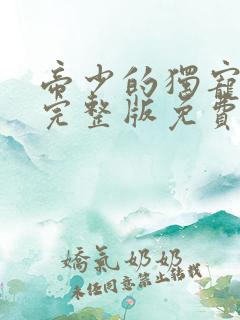 帝少的獨寵
完整版免費
嬌氣奶奶
未经同意禁止转载